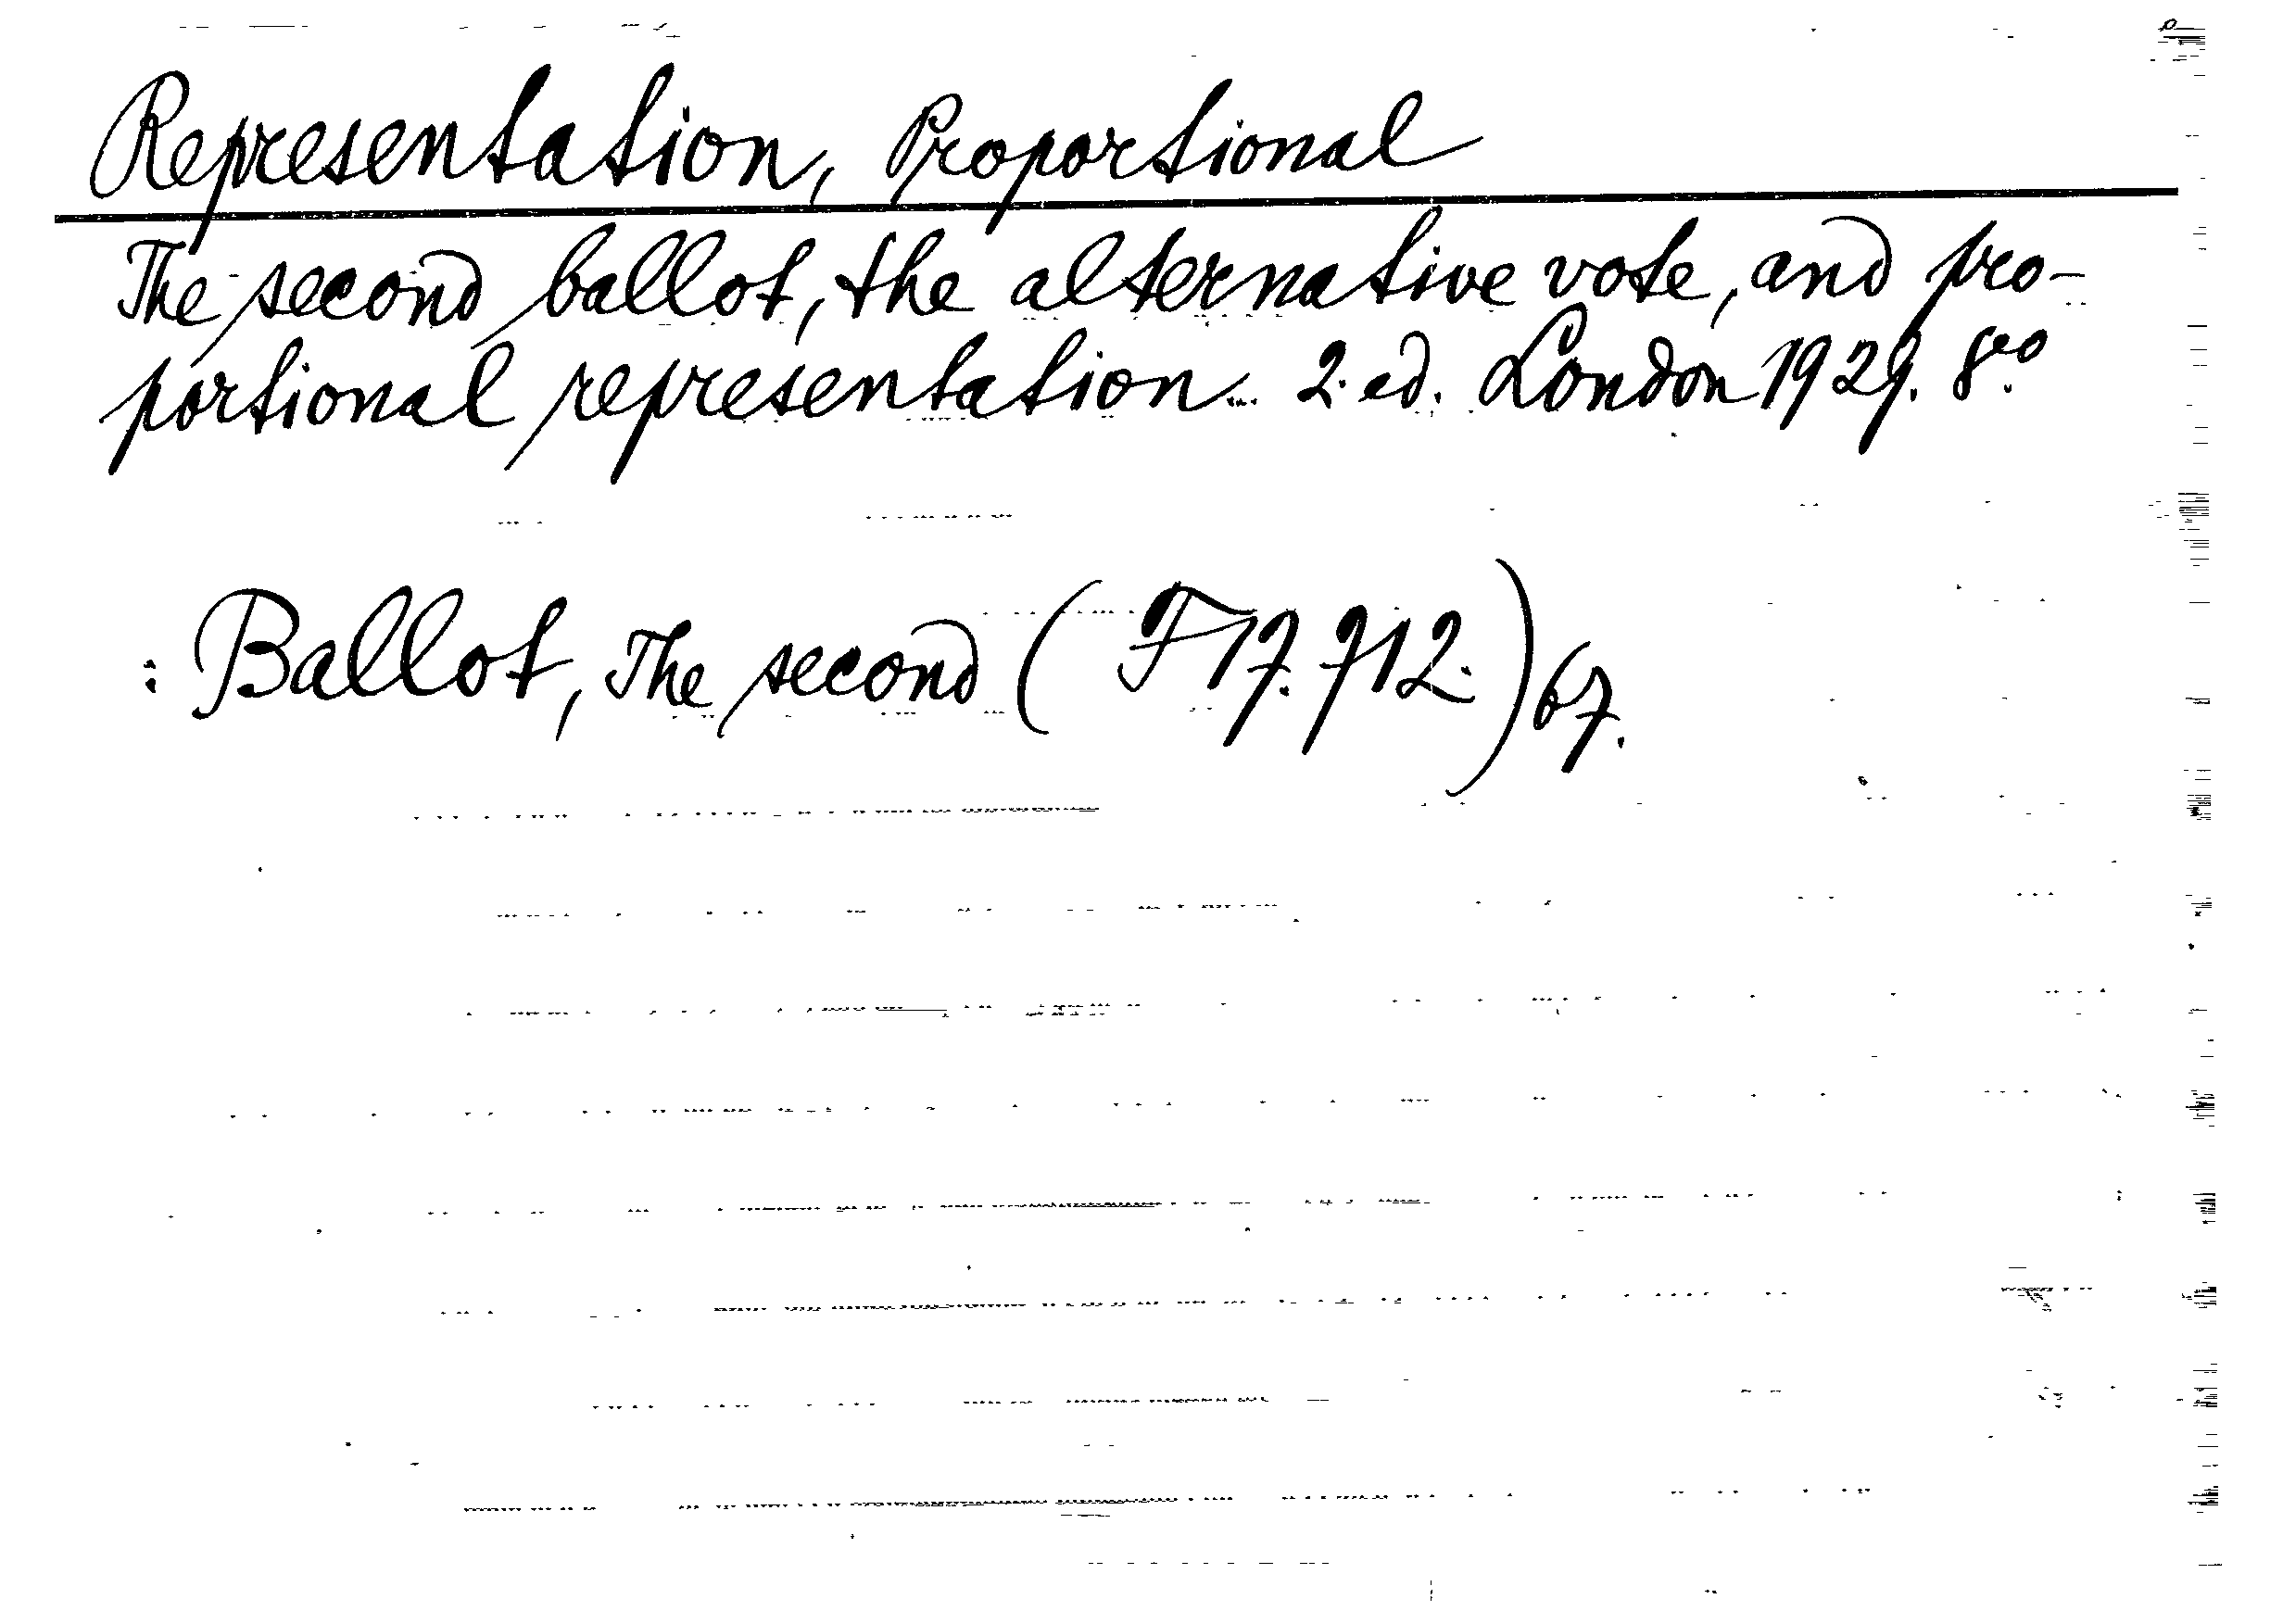 Representation, Proportional
The second ballot, the alternative vote, and pro-
portional representation... 2. ed. London 1929. 8vo
: Ballot, The second (F 17. 712.) 67.